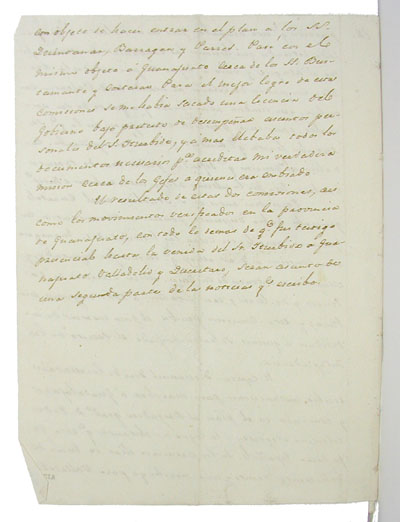 con objeto de hacer entrar en el plan á los SS.
Quintanar, Barragan, y Parres. Paso con el
mismo objeto á Guanajuato cerca de los SS. Bus-
tamante y Cortazar. Para el mejor logro de estas
comisiones se me habia sacado una licencia del
Gobierno bajo pretesto de desempeñar asuntos per-
sonales del S. Iturbide, y á mas llebaba todos los
documentos necesarios pª acreditar mi verdadera
mision cerca de los Gefes á quienes era enbiado
El resultado de estas dos comisiones, asi
como los movimientos verificados en la provincia
de Guanajuato, con todo lo demas de qᵉ fui testigo
presencial hasta la venida del Sr. Iturbide á Gua-
najuato, Valladolid y Queretaro, seran asunto de
una segunda parte de la noticias qᵉ escribo.